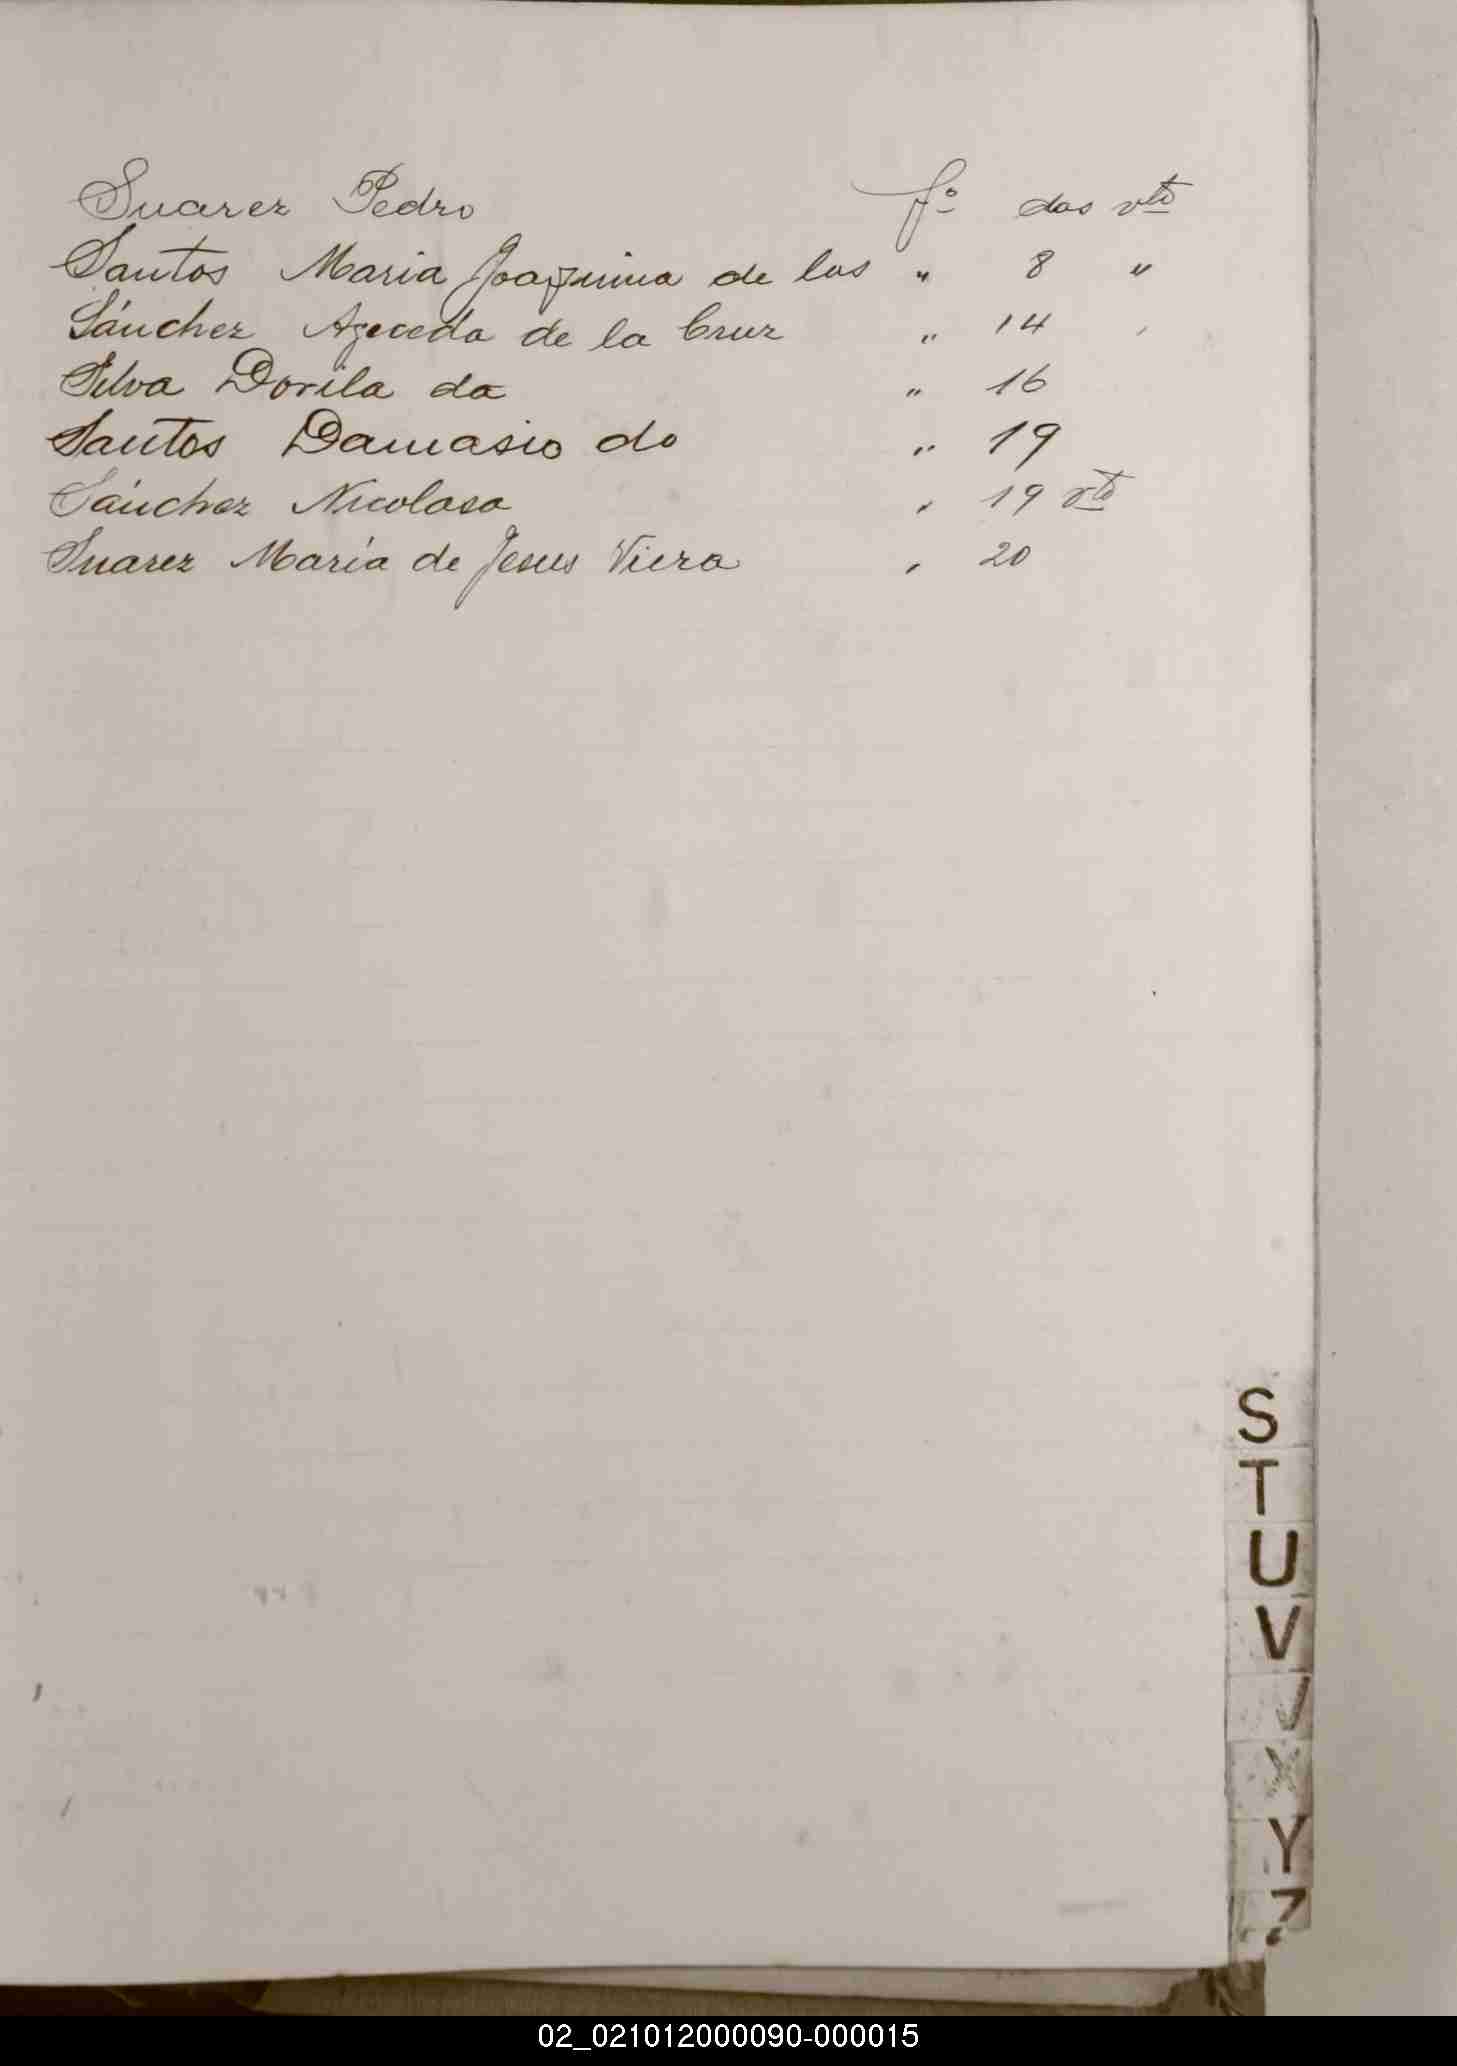 Suarez Pedro fº dos vto
Santos Maria Joaquina de los " 8 "
Sánchez Azeceda de la Cruz " 14 '
Silva Dorila da " 16
Santos Damasio do " 19
Sánchez Nicolasa " 19 vto
Suarez María de Jesus Viera " 20
S
T
U
V
Y
Z
02_021012000090-000015